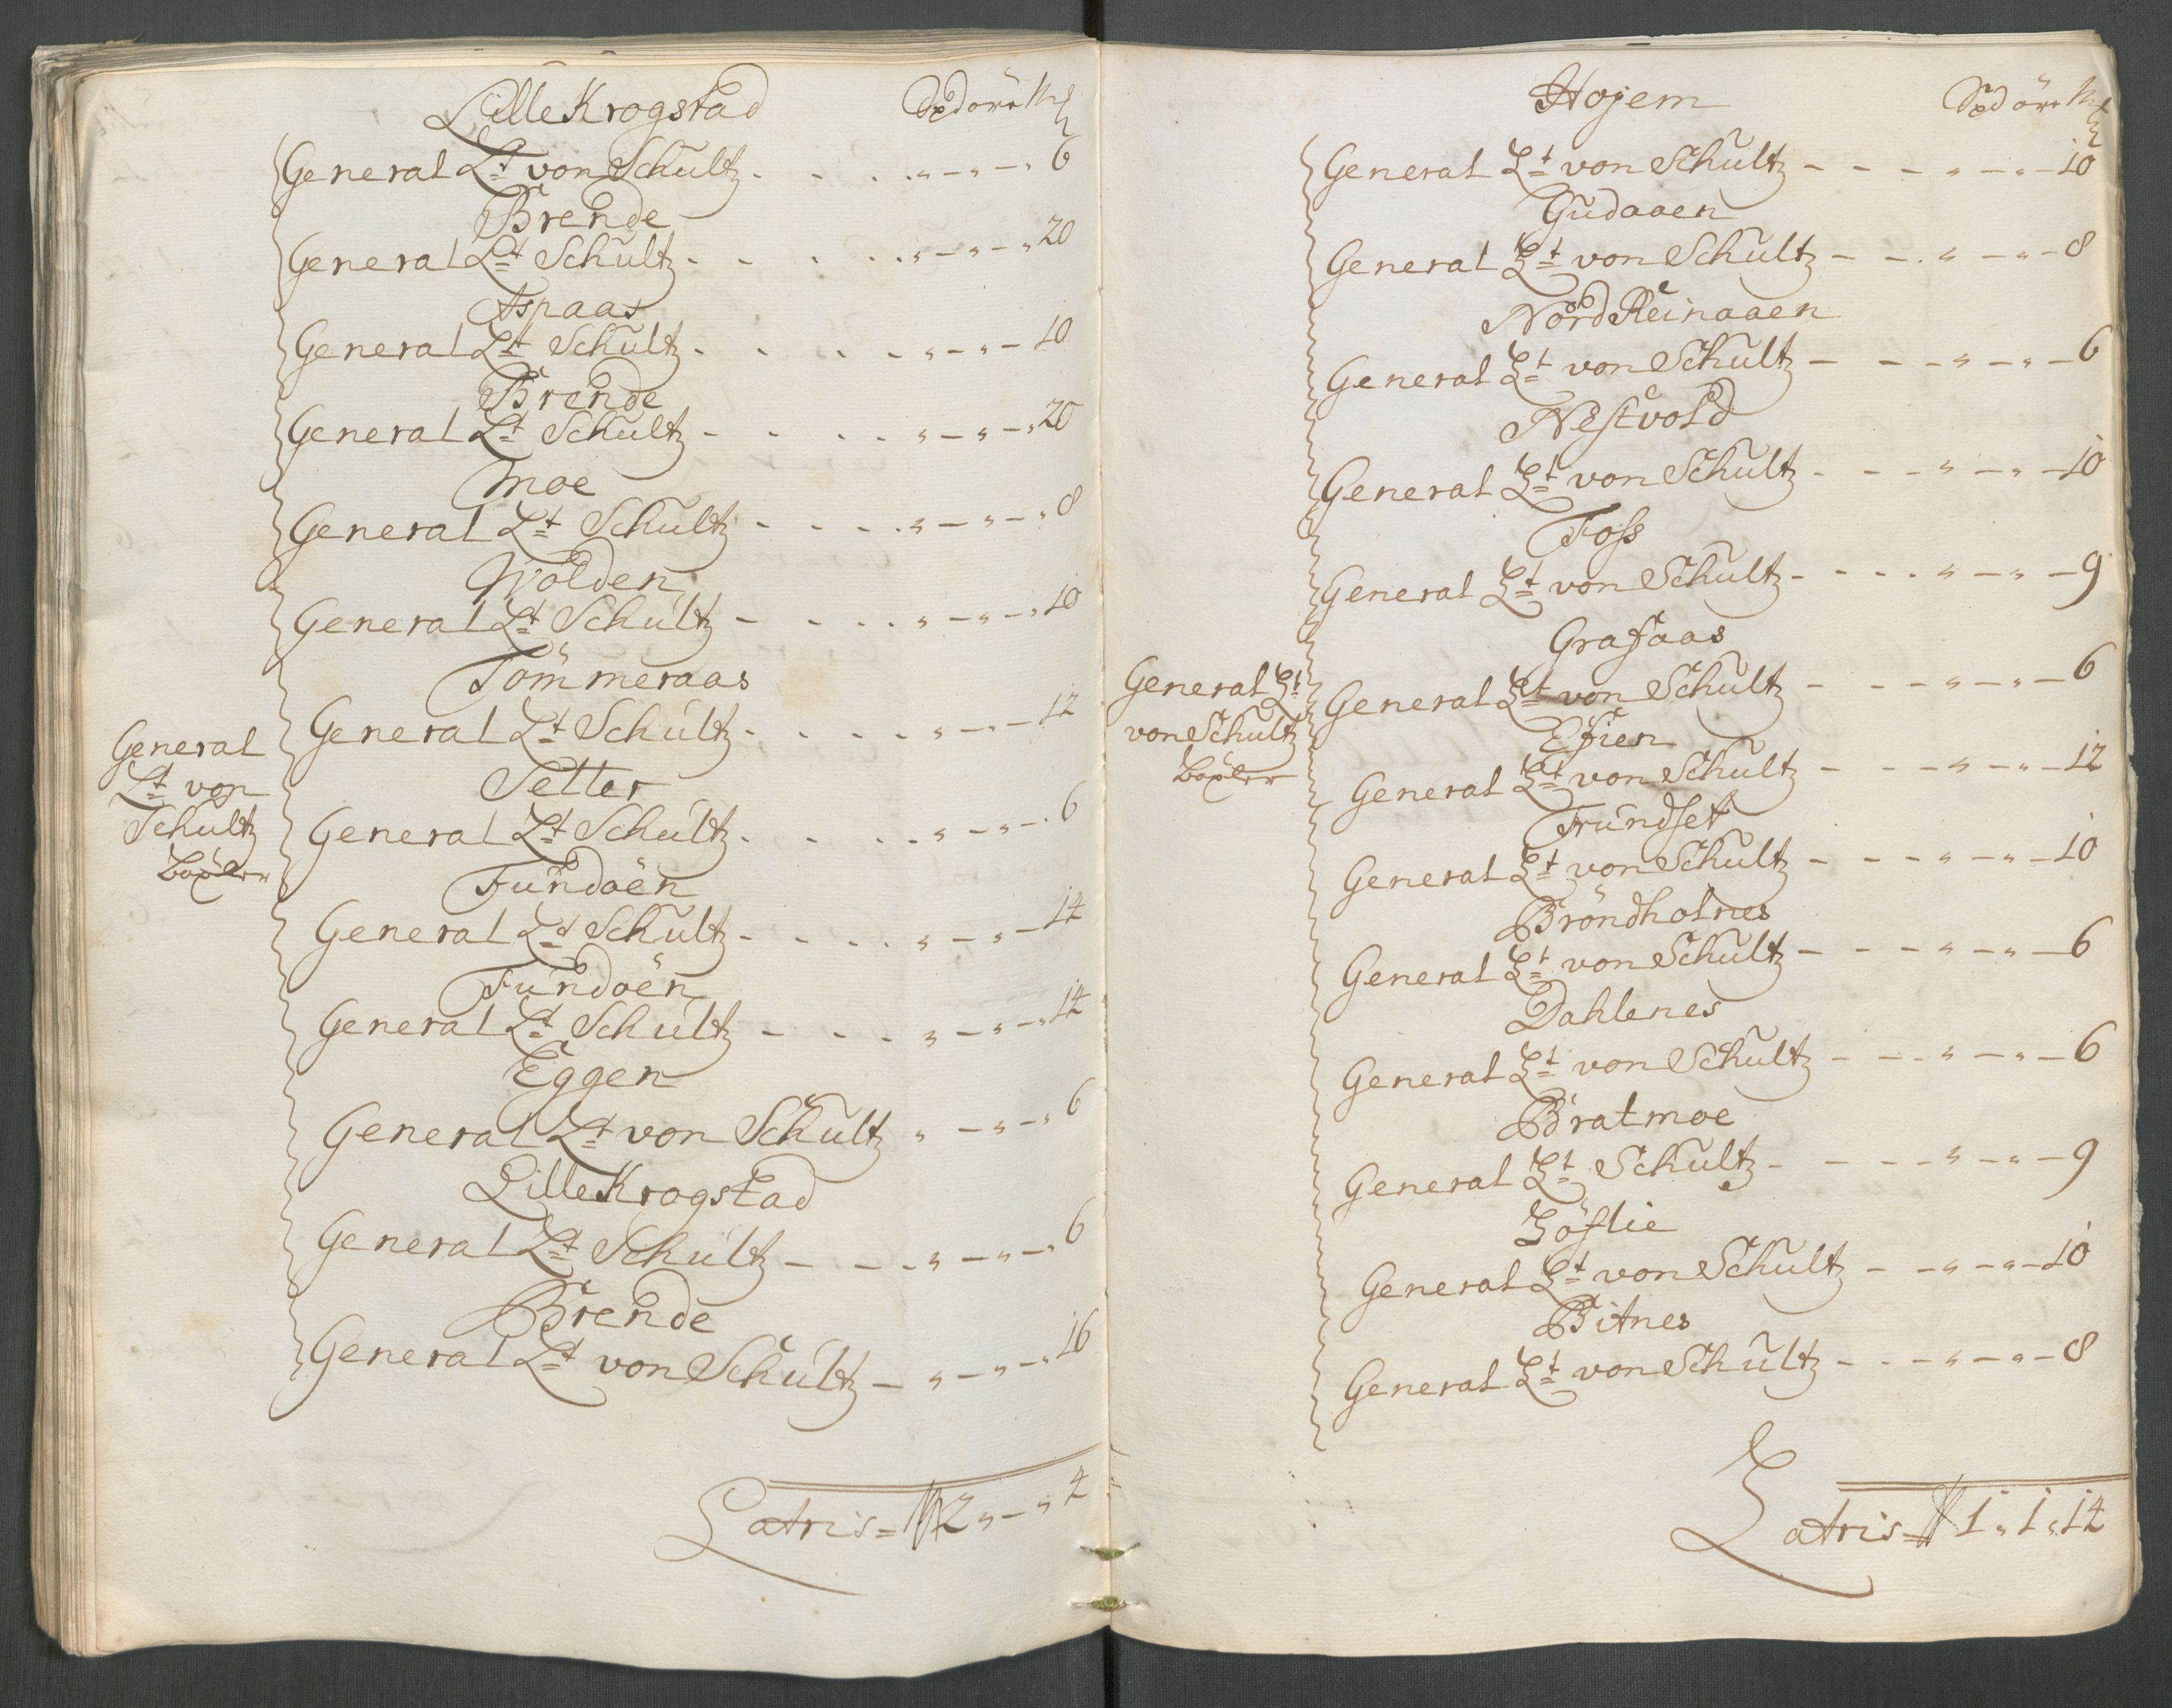 Lille Krogstad
General Lt von Schultz - - - - „ - „ - „ 6
Brende
General Lt Schultz - - - - „ - „ - „ 20
Aspaas
General Lt Schultz - - - - „ - „ - 10
Brende
General Lt Schultz - - - - „ - „ - „ 20
Moe
General Lt Schultz - - - - „ - „ - „ 8
Wolden
General Lt Schultz - - - - „ - „ - „ 10
Tömmeraas
General Lt Schultz - - - - „ - „ - 12
Setter
General Lt Schultz - - - - „ - „ - 6
Fundaen
General Lt Schultz - - - - „ - „ - 14
Fundaen
General Lt Schultz - - - - „ - „ - „ 14
Eggen
General Lt von Schultz „ - „ - „ 6
Lille Krogstad
General Lt Schultz - - - „ - „ - „ 6
Brende
General Lt von Schultz - „ - „ - „ 16
General
Lt von
Schultz
Latris = 2 „ - „ 4
Hojem
General Lt von Schultz - - - „ - „ - 10
Gudaaen
General Lt von Schultz - - - „ - „ - 8
Nord Reinaaen
General Lt von Schultz - - - „ - „ - 6
Nestvold
General Lt von Schultz - - - „ - „ - 10
Foss
General Lt von Schultz - - - - „ - „ - 9
Grafaas
General Lt von Schultz - - - „ - „ - 6
General Lt von Schultz - - - „ - „ - 12
Trundset
General Lt von Schultz - - - „ - „ - 10
Bröndholnes
General Lt von Schultz - - - „ - „ - 6
Dahlenes
General Lt von Schultz - - - „ - „ - 6
Bratmoe
General Lt Schultz - - - - „ - „ - 9
General Lt von Schultz - - „ - „ - 10
Bitnes
General Lt von Schultz - - - „ - „ - 8
General Lt
von Schultz
Latris = 1 „ 1 „ 14